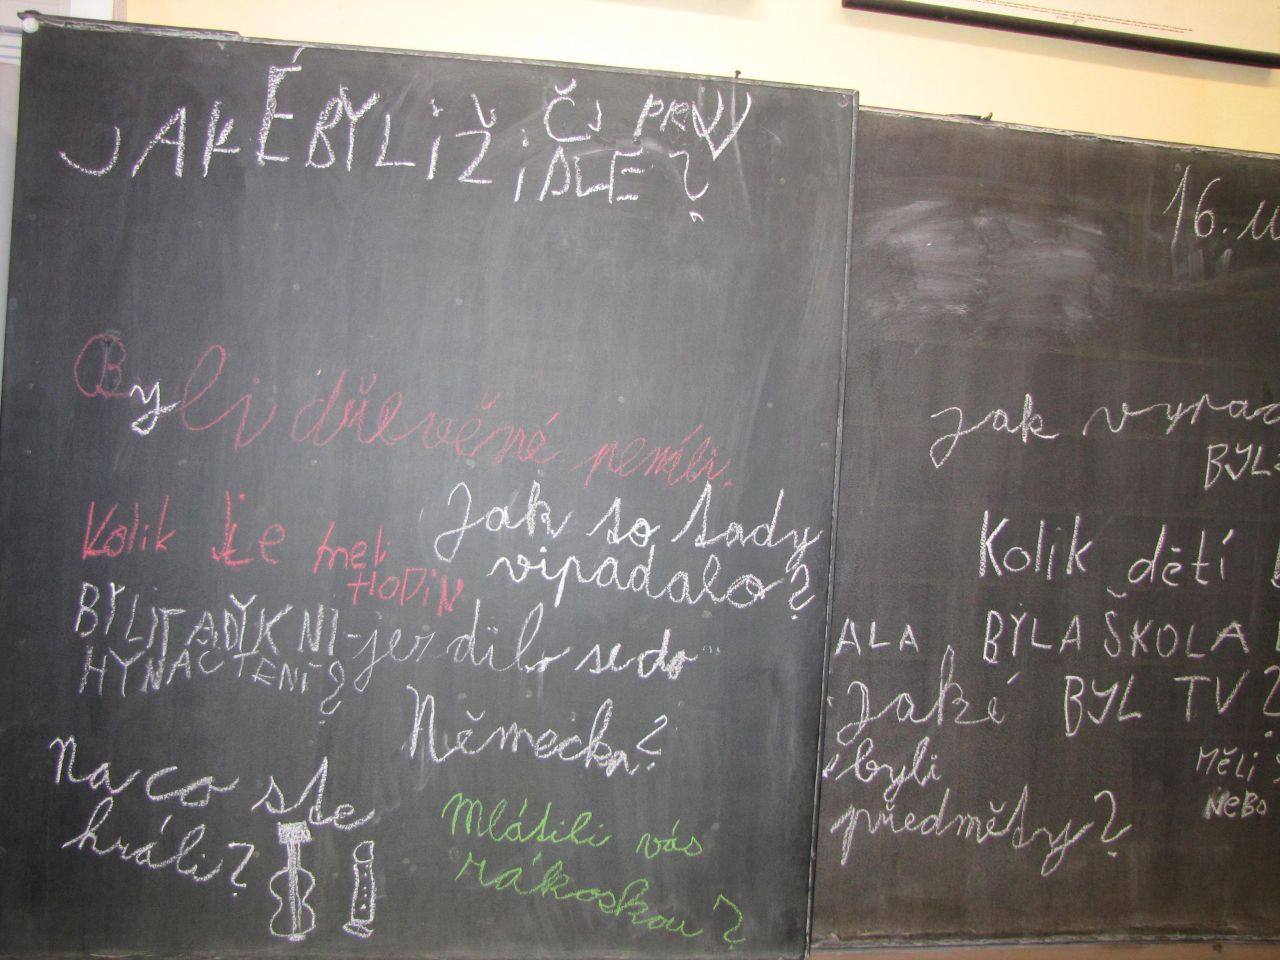 JAKÉ BYLI ŽIDLE?
Byli dřevěné penály.
Kolik
HODIN
Jak to tady
vipadalo?
BYLI
HY NA ČTENÍ?
jezdilo se do
Německa?
na co ste
hráli?
Mlátili vás
rákoskou?
16.
Jak
BYL
Kolik dětí
ALA BYLA ŠKOLA
jaké BYL TV?
byli MĚLI
předměty? NEBO